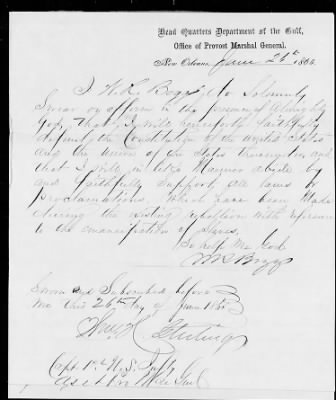 Head Quarters Department of the Gulf,
Office of Provost Marshal General.
New Orleans, June 26th 186
I W. R. Boggs do Solemnly
Swear or affirm in the presence of Almighty
God, that I will henceforth faithfully
defend the Constitution of the United States
and the Union of the States thereunder and
that I will in like Manner abide by
and faithfully Support all laws &
proclamations, Which have been Made
during the existing rebellion with reference
to the emancipation of Slaves,
So help Me God
W R Boggs
Sworn and Subscribed before
Me this 26th day of June 1865
Sterling
Capt 1st U.S. Infty